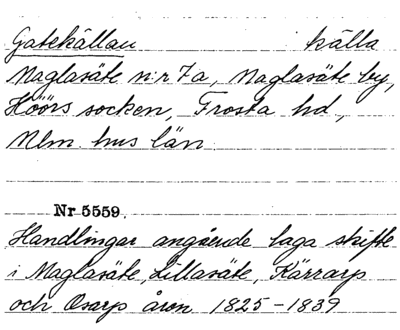 Gatekällan källa
Maglasäte n:r 7a, Maglasäte by,
Höörs socken, Frosta hd,
Mlm. hus län
Nr 5559.
Handlingar angående laga skifte
i Maglasäte, Lillasäte, Kärrarp
och Osarp åren 1825-1839